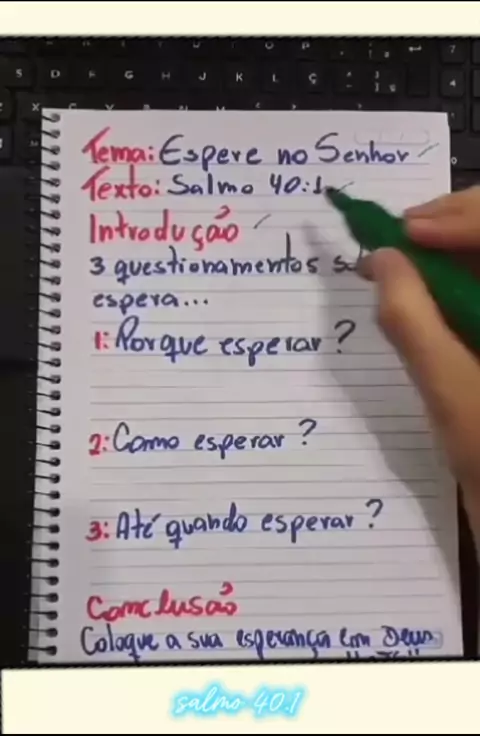 Tema: Espere no Senhor
Texto: Salmo 40:1
Introdução
3 questionamentos
espera...
1: Porque esperar?
2: Como esperar?
3: Até quando esperar?
Conclusão
Coloque a sua esperança em Deus
salmo 40.1